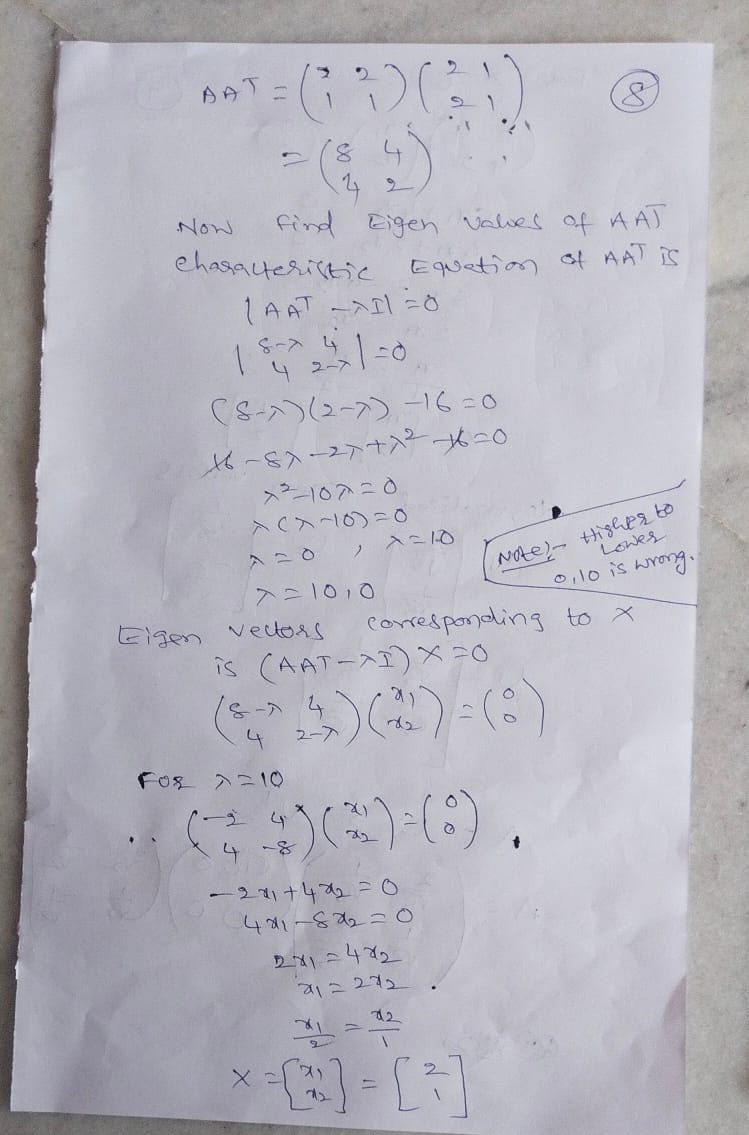 AAT = (2 2 1 1) (2 1 2 1)
8
= (8 4 4 2)
Now find Eigen values of AAT
characteristic Equation of AAT is
|AAT - λI| = 0
|8-λ 4 4 2-λ| = 0
(8-λ)(2-λ) - 16 = 0
16 - 8λ - 2λ + λ² - 16 = 0
λ² - 10λ = 0
λ(λ-10) = 0
λ = 0 , λ = 10
Note:- Higher to
Lower
0,10 is wrong.
λ = 10,0
Eigen vectors corresponding to x
is (AAT - λI) X = 0
(8-λ 4 4 2-λ) (x1 x2) = (0 0)
For λ = 10
(-2 4 4 -8) (x1 x2) = (0 0)
-2x1 + 4x2 = 0
4x1 - 8x2 = 0
2x1 = 4x2
x1 = 2x2
x1/2 = x2/1
X = [x1 x2] = [2 1]